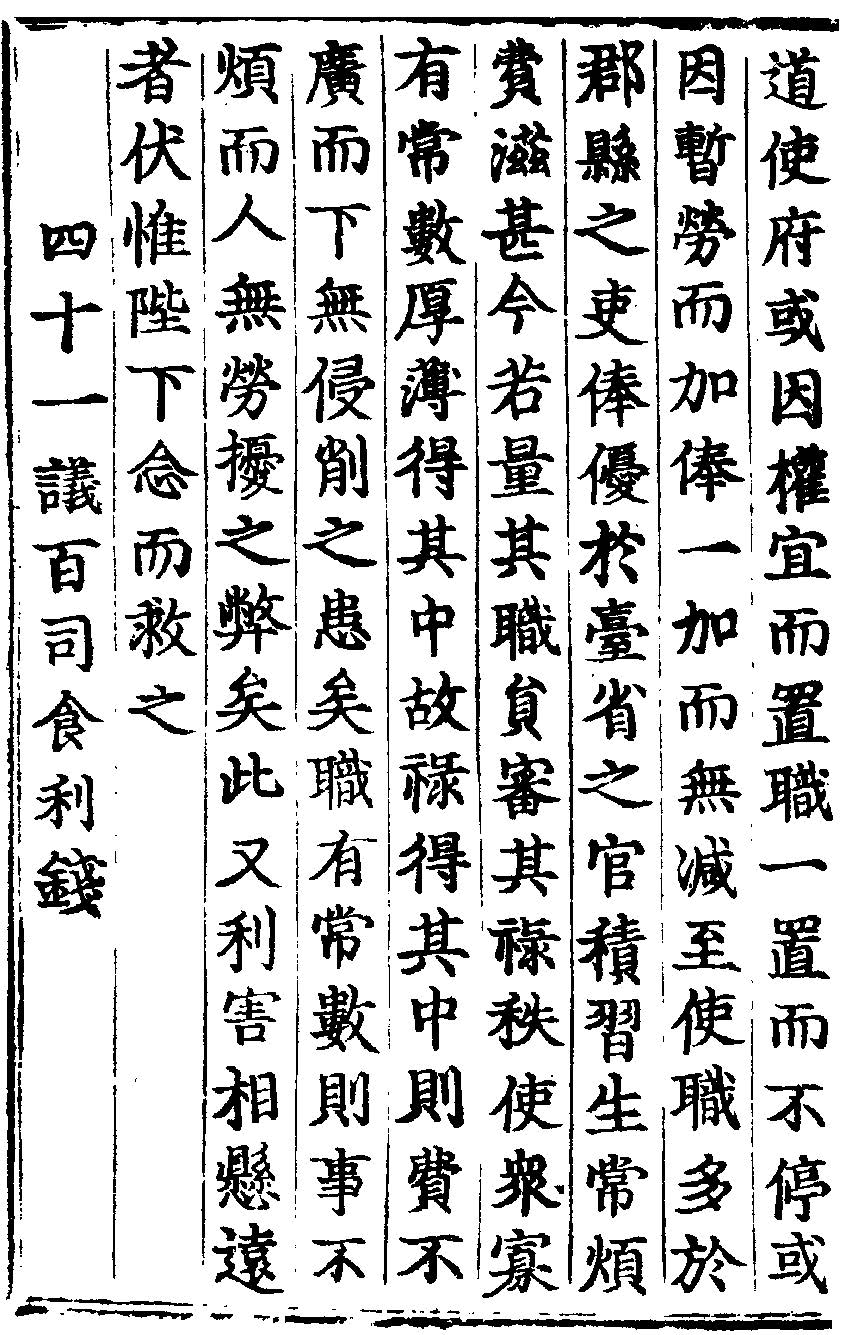 道使府或因權宜而置職一置而不停或
因暫勞而加俸一加而無減至使職多於
郡縣之吏俸優於臺省之官積習生常煩
費滋甚今若量其職負審其祿秩使衆寡
有常數厚薄得其中故祿得其中則費不
廣而下無侵削之患矣職有常數則事不
煩而人無勞擾之弊矣此又利害相懸遠
者伏惟陛下念而救之
四十一議百司食利錢